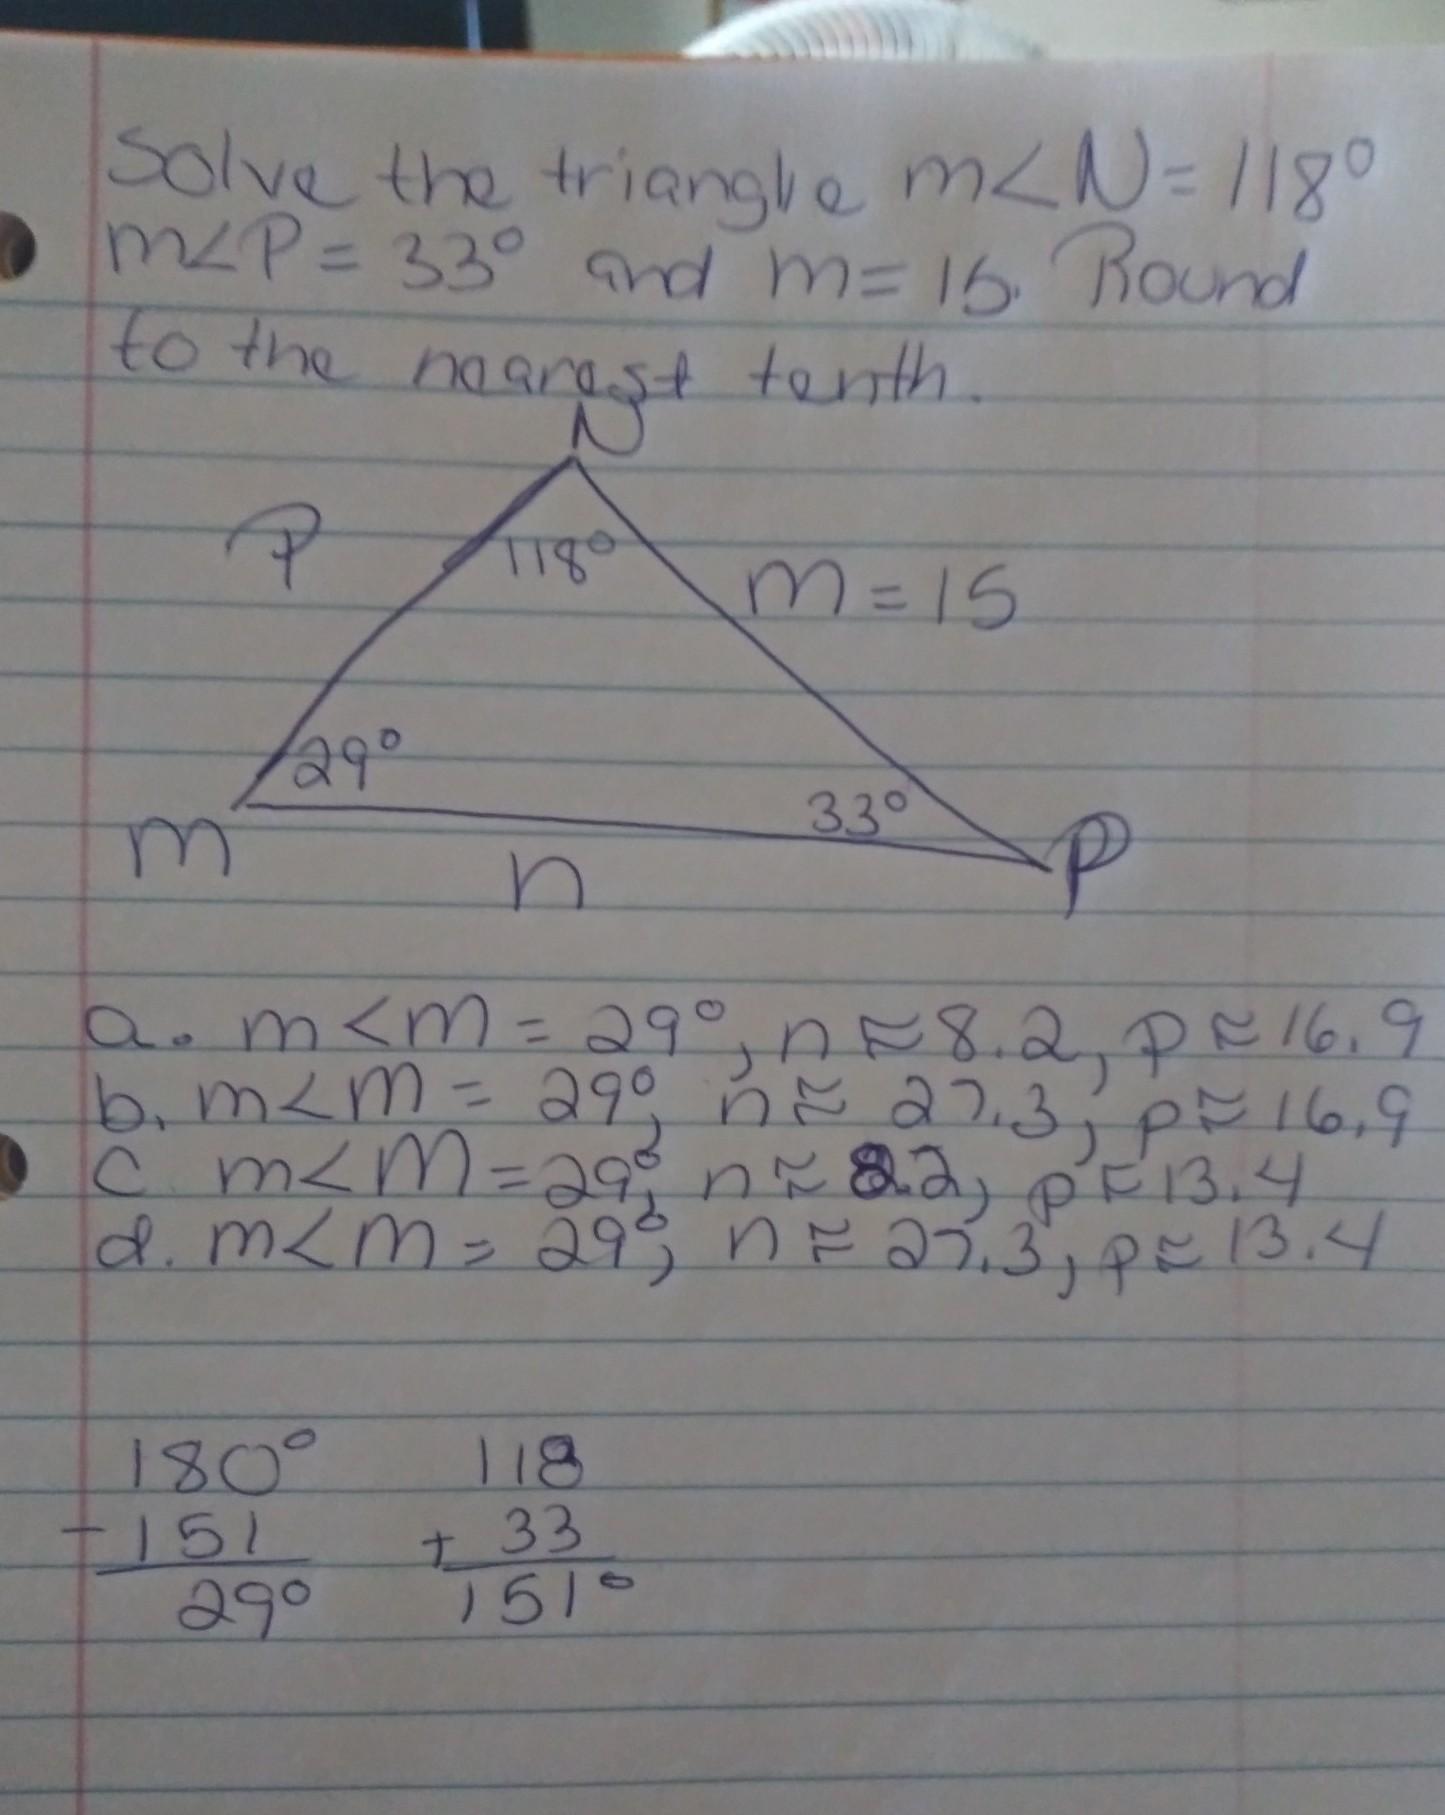 Solve the triangle m<N=118°
m<P=33° and m=15. Round
to the nearest tenth.
N
P
118°
m=15
29°
33°
m
P
n
a. m<m=29°, n≈8.2, p≈16.9
b. m<m=29°, n≈27.3, p≈16.9
c m<M=29°, n≈8.2, p≈13.4
d. m<m=29°, n≈27.3, p≈13.4
180° 118
-151 + 33
29° 151°